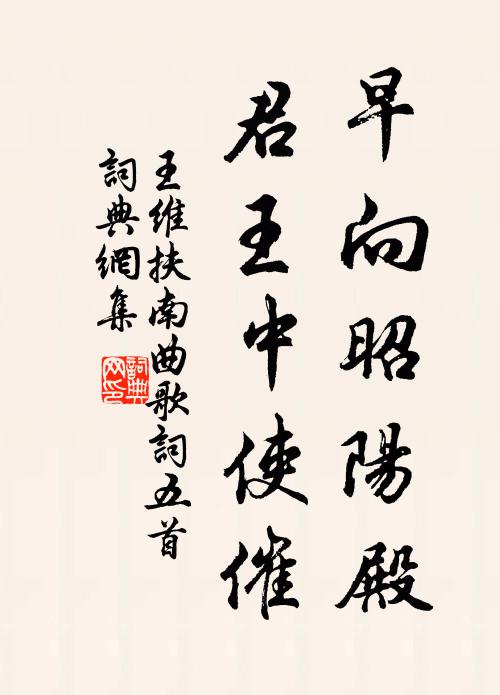 早向昭陽殿
君王中使催
王維扶南曲歌詞五首
詞典網集
詞典
网印